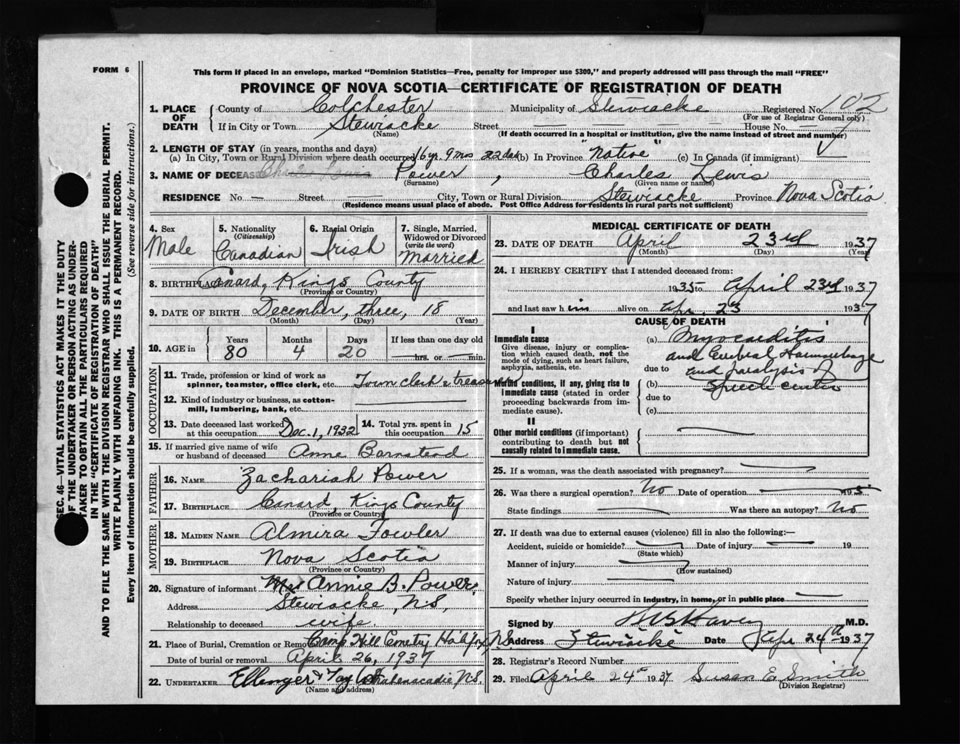 FORM 6
This form if placed in an envelope, marked "Dominion Statistics—Free, penalty for improper use $300," and properly addressed will pass through the mail "FREE"
PROVINCE OF NOVA SCOTIA—CERTIFICATE OF REGISTRATION OF DEATH
1. PLACE OF DEATH County of Colchester Municipality of Stewiacke Registered No. 102
(For use of Registrar General only)
If in City or Town Stewiacke Street House No.
(Name) (If death occurred in a hospital or institution, give the name instead of street and number)
2. LENGTH OF STAY (in years, months and days)
(a) In City, Town or Rural Division where death occurred 16 yr. 9 mos 22 das (b) In Province "native" (c) In Canada (if immigrant)
3. NAME OF DECEASED Power, Charles Lewis
(Surname) (Given name or names)
RESIDENCE No. — Street City, Town or Rural Division Stewiacke Province Nova Scotia
(Residence means usual place of abode. Post Office Address for residents in rural parts not sufficient)
4. Sex Male
5. Nationality (Citizenship) Canadian
6. Racial Origin Irish
7. Single, Married, Widowed or Divorced (write the word) Married
8. BIRTHPLACE Canard, Kings County
(Province or Country)
9. DATE OF BIRTH December, three, 18
(Month) (Day) (Year)
10. AGE in Years Months Days If less than one day old
80 4 20 hrs. or min.
OCCUPATION
11. Trade, profession or kind of work as spinner, teamster, office clerk, etc. Town clerk & treasurer
12. Kind of industry or business, as cotton-mill, lumbering, bank, etc.
13. Date deceased last worked at this occupation Dec. 1, 1932
14. Total yrs. spent in this occupation 15
15. If married give name of wife or husband of deceased Anne Barnstead
FATHER
16. NAME Zachariah Power
17. BIRTHPLACE Canard, Kings County
(Province or Country)
MOTHER
18. MAIDEN NAME Almira Fowler
19. BIRTHPLACE Nova Scotia
(Province or Country)
20. Signature of informant Mrs Annie B. Power
Address Stewiacke, N.S.
Relationship to deceased wife.
21. Place of Burial, Cremation or Removal Camp Hill Cemetry Halifax N.S.
Date of burial or removal April 26, 1937
22. UNDERTAKER Shubenacadie N.S.
(Name and address)
MEDICAL CERTIFICATE OF DEATH
23. DATE OF DEATH April 23rd 1937
(Month) (Day) (Year)
24. I HEREBY CERTIFY that I attended deceased from:
1935 to April 23rd 1937
and last saw him alive on Apr. 23 1937
CAUSE OF DEATH
I
Immediate cause
Give disease, injury or complication which caused death, not the mode of dying, such as heart failure, asphyxia, asthenia, etc.
(a) Myocarditis
due to and Cerebral Haemorrhage
and paralysis of
Morbid conditions, if any, giving rise to immediate cause (stated in order proceeding backwards from immediate cause).
(b) speech center
due to
(c)
II
Other morbid conditions (if important) contributing to death but not causally related to immediate cause.
25. If a woman, was the death associated with pregnancy?
26. Was there a surgical operation? No Date of operation 193
State findings Was there an autopsy? No
27. If death was due to external causes (violence) fill in also the following:—
Accident, suicide or homicide? Date of injury 19
(State which)
Manner of injury
(How sustained)
Nature of injury
Specify whether injury occurred in industry, in home, or in public place
Signed by M.D.
Address Stewiacke Date Apr 24th 1937
28. Registrar's Record Number
29. Filed April 24th 1937 Susan E. Smith
(Division Registrar)
SEC. 46—VITAL STATISTICS ACT MAKES IT THE DUTY OF THE UNDERTAKER OR PERSON ACTING AS UNDERTAKER TO OBTAIN ALL THE PARTICULARS REQUIRED IN THE "CERTIFICATE OF REGISTRATION OF DEATH"
AND TO FILE THE SAME WITH THE DIVISION REGISTRAR WHO SHALL ISSUE THE BURIAL PERMIT.
WRITE PLAINLY WITH UNFADING INK. THIS IS A PERMANENT RECORD.
Every item of information should be carefully supplied. (See reverse side for instructions.)